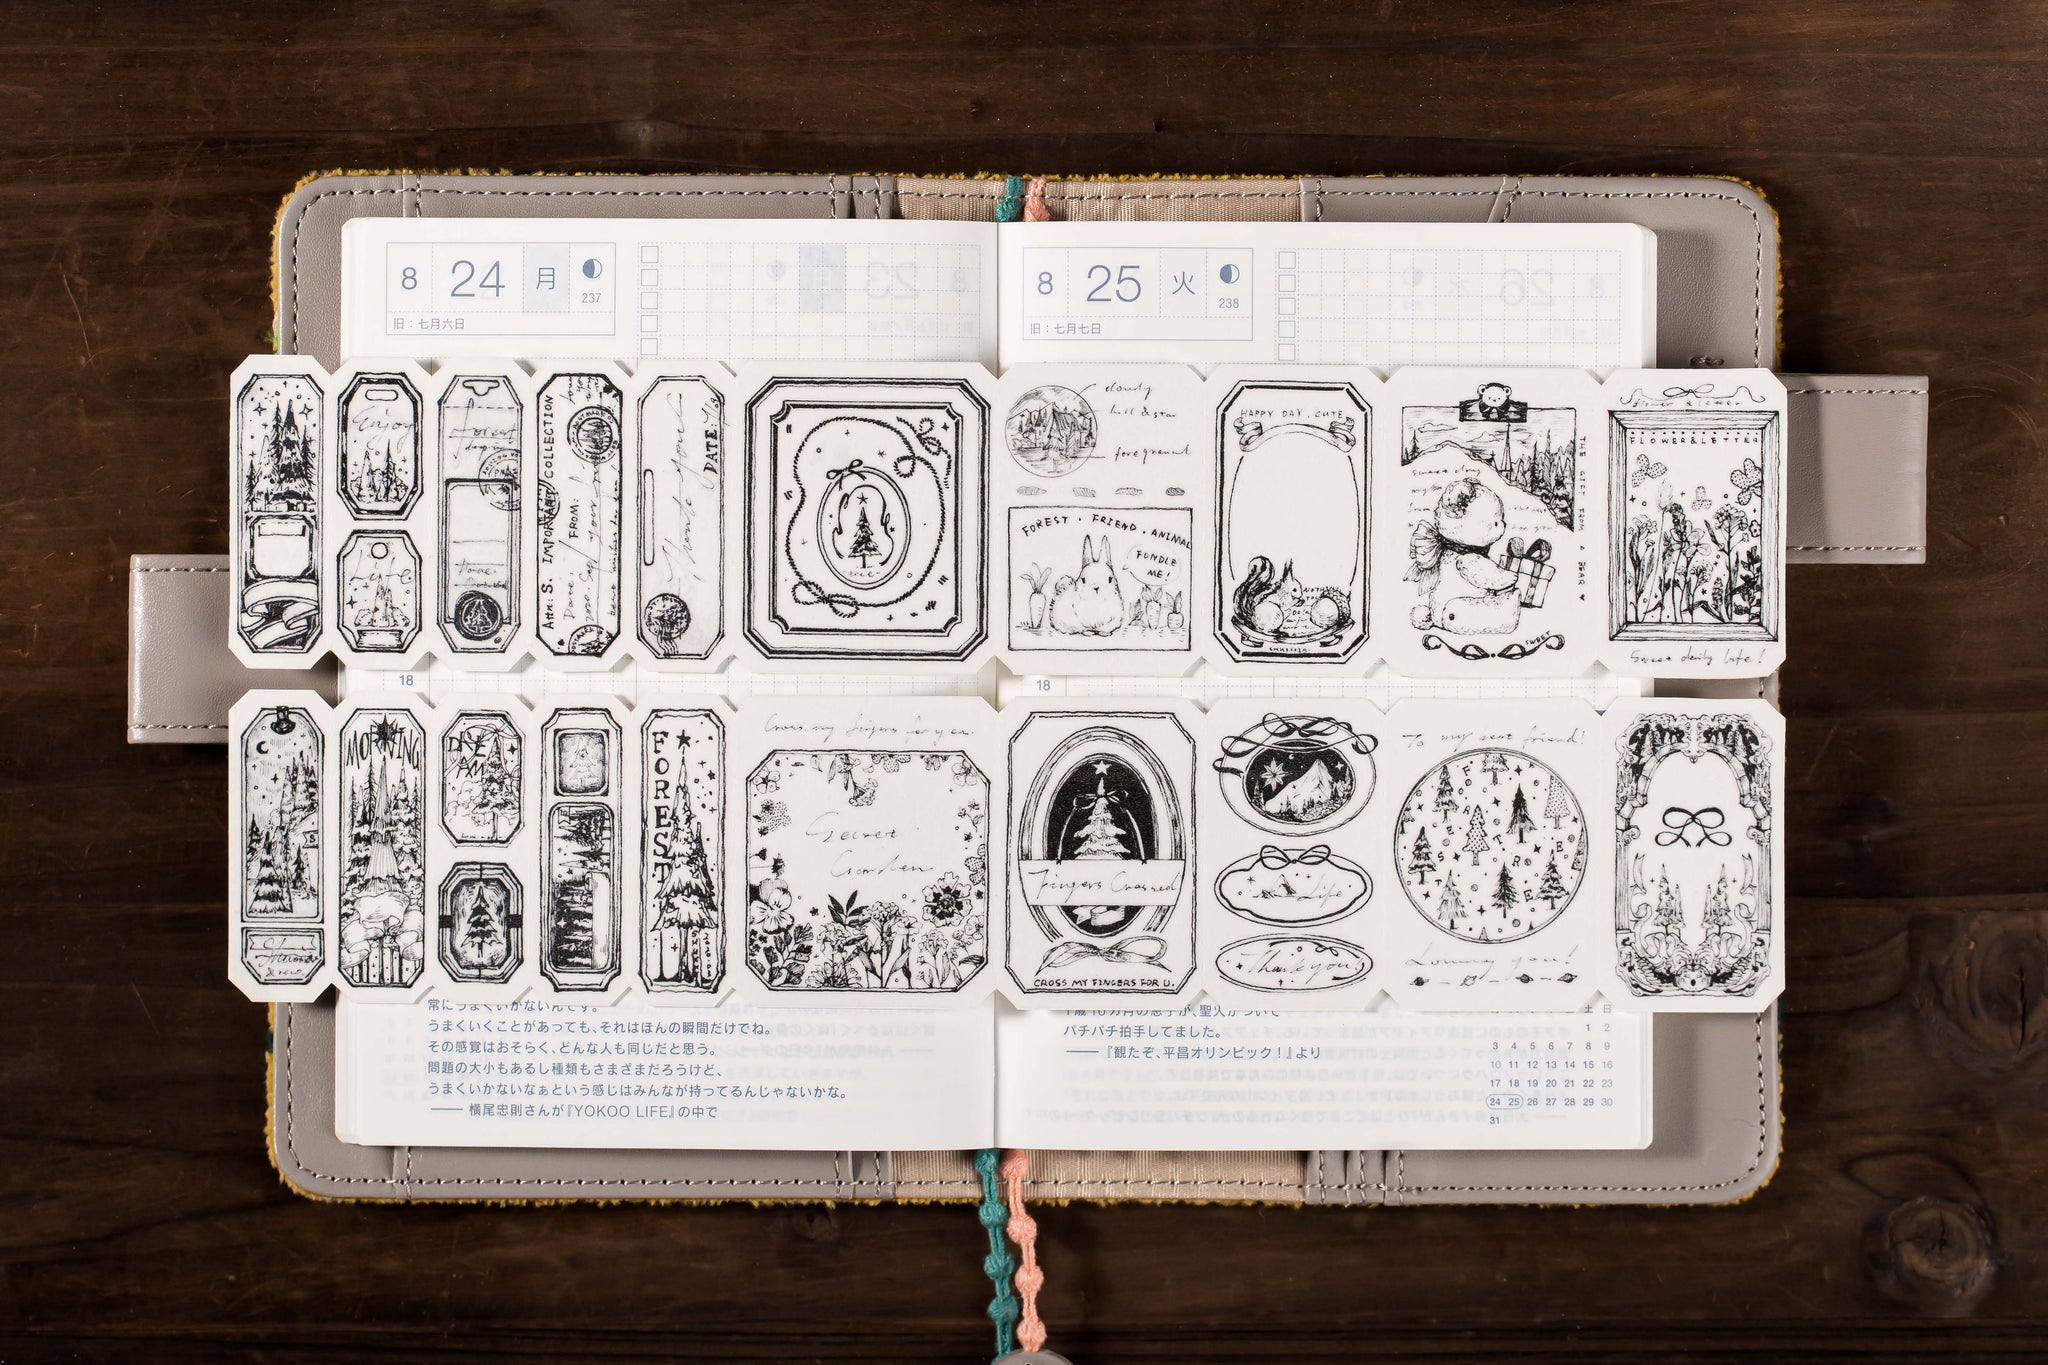 8 24 月 237
旧：七月六日
8 25 火 238
旧：七月七日
Enjoy
forest
Attn: S. IMPORTANT COLLECTION
FROM:
Date:
Thank you
DATE:
tree
cloudy
hill & star
foreground
FOREST · FRIEND · ANIMAL
FONDLE
ME!
HAPPY DAY. CUTE
THE GIFT FROM A BEAR
SWEET
FLOWER & LETTER
Sweet daily life!
Life
18
18
MORNING
DREAM
FOREST
Cross my fingers for you.
Secret
Garden
Fingers Crossed
CROSS MY FINGERS FOR U.
Life
Thank you!
To my best friend!
FOREST TREE
Loving you!
常にうまくいかないんです。
うまくいくことがあっても、それはほんの瞬間だけでね。
その感覚はおそらく、どんな人も同じだと思う。
問題の大小もあるし種類もさまざまだろうけど、
うまくいかないなぁという感じはみんなが持ってるんじゃないかな。
—— 横尾忠則さんが『YOKOO LIFE』の中で
1歳10カ月の息子が、聖火がついて
パチパチ拍手してました。
——『観たぞ、平昌オリンピック！』より
土 日
1 2
3 4 5 6 7 8 9
10 11 12 13 14 15 16
17 18 19 20 21 22 23
24 25 26 27 28 29 30
31